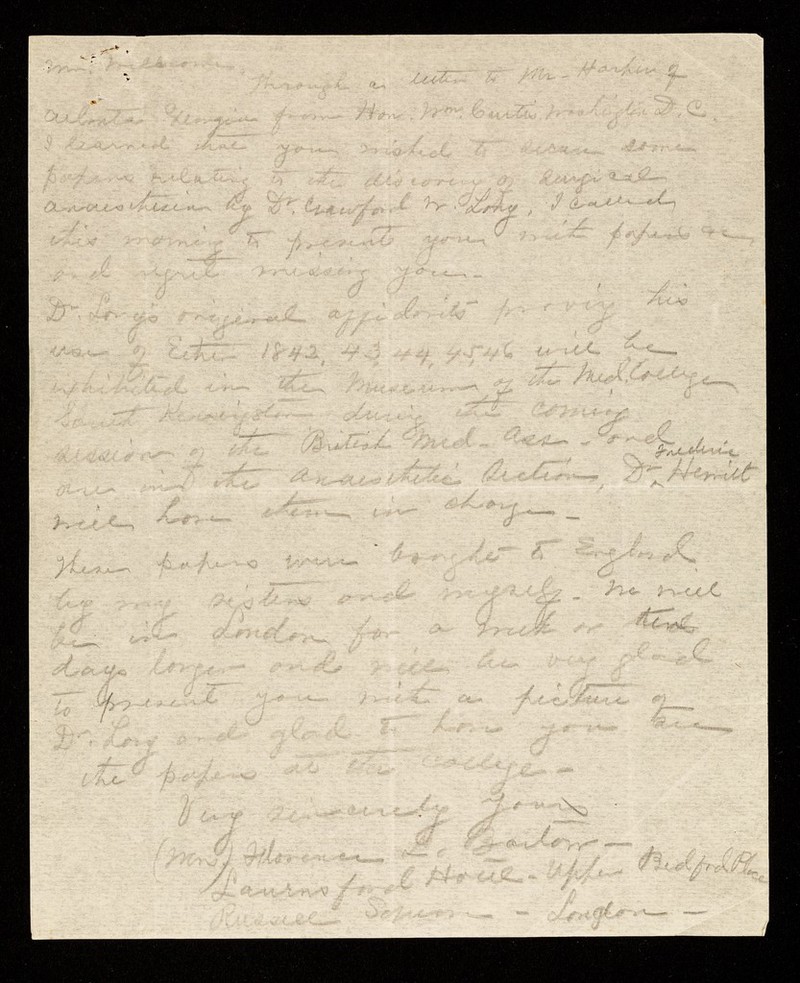 Mr. Wellcome,
Through a letter to Mr. Harper of
Atlanta Georgia from Hon. Wm. Curtis Washington D.C.
I learned that you wished to secure some
papers relating to the discovery of surgical
anaesthesia by Dr. Crawford W. Long, I called
this morning to present you with papers
and regret missing you.
Dr. Long's original affidavits proving his
use of Ether 1842, 43, 44, 45, 46 will be
exhibited in the Museum of the Med. College
South Kensington during the coming
session of the British Med- Ass- and
are in the Anaesthetic Section, Dr. Frederic Hewitt
will have them in charge -
These papers were bought to England
by my sisters and myself - We will
be in London for a week or
days longer and will be very glad
to present you with a picture of
Dr. Long and glad to have you see
the papers at the College -
Very sincerely yours
(Mrs) Florence L. Bartow -
Hotel - Upper Bedford Place
Russell Square - London -